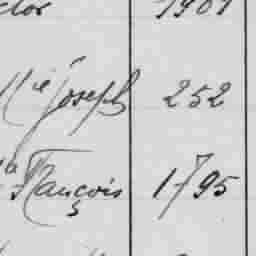 ctor 1901
Mie Joseph 252
Va François 1795